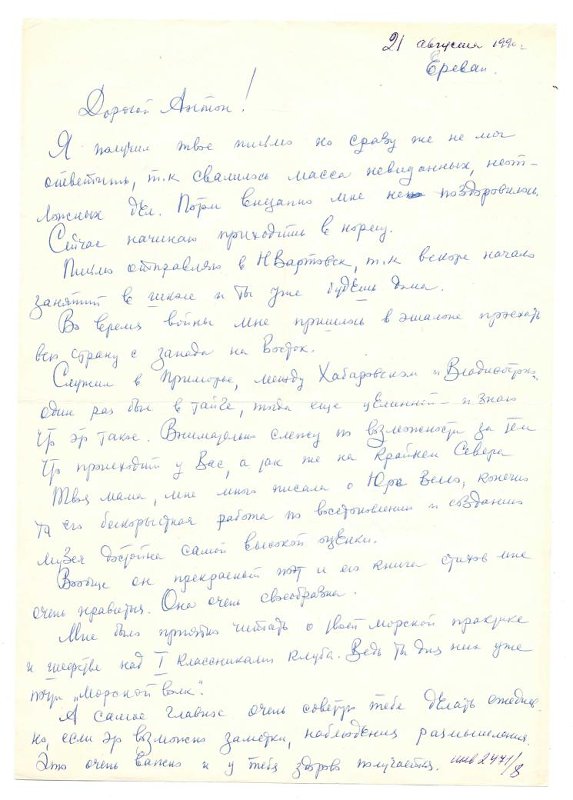 21 августа 1990 г
Ереван.
Дорогой Антон!
Я получил твое письмо но сразу же не мог
ответить, т.к свалилось масса невиданных, неот-
ложных дел. Потом внезапно мне поздоровилось.
Сейчас начинаю приходить в норму.
Письмо отправляю в НВартовск, т.к вскоре начало
занятий в школе и ты уже будешь дома.
Во время войны мне пришлось в эшалоне проехать
всю страну с запада на Восток.
Служил в Приморье, между Хабаровском и Владивостоком,
один раз был в тайге, тогда еще целинной и знаю
что это такое. Внимательно слежу по возможности за тем
что происходит у Вас, а так же на Крайнем Севере
Твоя мама, мне много писала о Юре Велла, конечно
та его бескорыстная работа по восстановлению и созданию
музея достойна самой высокой оценки.
Вообще он прекрасный поэт и его книга стихов мне
очень нравится. Она очень своеобразна.
Мне было приятно читать о твоей морской практике
и шефстве над I классниками клуба. Ведь ты для них уже
почти "Морской волк".
А самое главное очень советую тебе делать ежеднев-
но, если это возможно заметки, наблюдения размышления
Это очень важно и у тебя здорово получается. инв 2471/8